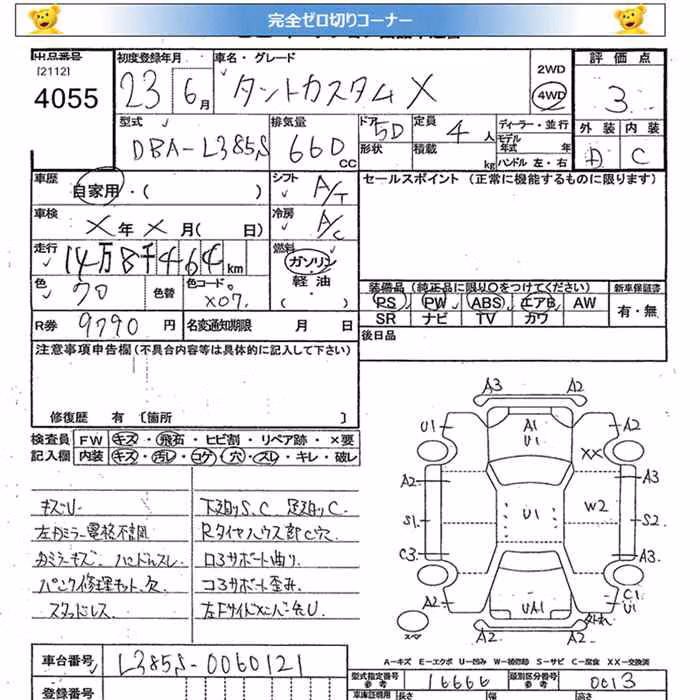 完全ゼロ切りコーナー
出品番号
[2112]
4055
初度登録年月
23 6月
車名・グレード
タントカスタム X
2WD
4WD
評価点
3
型式
DBA-L385S
排気量
660 CC
ドア 5D
形状
定員 4人
積載 kg
ディーラー・並行
モデル年式 年
ハンドル 左・右
外装 内装
A C
車歴
自家用・( )
シフト A/T
車検
X 年 X 月( 日)
冷房 A/C
走行
14万8千464km
燃料
ガソリン
軽油
( )
色 クロ 色替
色コード X07
R券 9790 円
名変通知期限 月 日
セールスポイント (正常に機能するものに限ります)
装備品 (純正品に限り○をつけてください)
PS PW ABS エアB AW
SR ナビ TV カワ
新車保証書
有・無
後日品
注意事項申告欄(不具合内容等は具体的に記入して下さい)
修復歴 有 〔箇所 〕
検査員 FW キズ・飛石・ヒビ割・リペア跡・×要
記入欄 内装 キズ・汚レ・コゲ・穴・スレ・キレ・破レ
キズU
左カミラー電格不調
カミラーキズ、ハンドルスレ
パンク修理キット欠
スタッドレス
下廻りS、C 足廻りC
Rタイヤハウス部C穴
ロアサポート曲り
コアサポート歪み
左FサイドメンバーU
A3 A2
U1 A1 U1 A2
XX
A2 A3
S1 U1 W2 S2
C3 A3
C1
A2 UA1 U1
外れ
スペ A2 A2
A-キズ E-エクボ U-凹み W-補修跡 S-サビ C-腐食 XX-交換済
車台番号
L385S-0060121
登録番号
型式指定番号
参考
16666
類別区分番号
参考
0013
車庫証明用
参考
長さ 幅 高さ